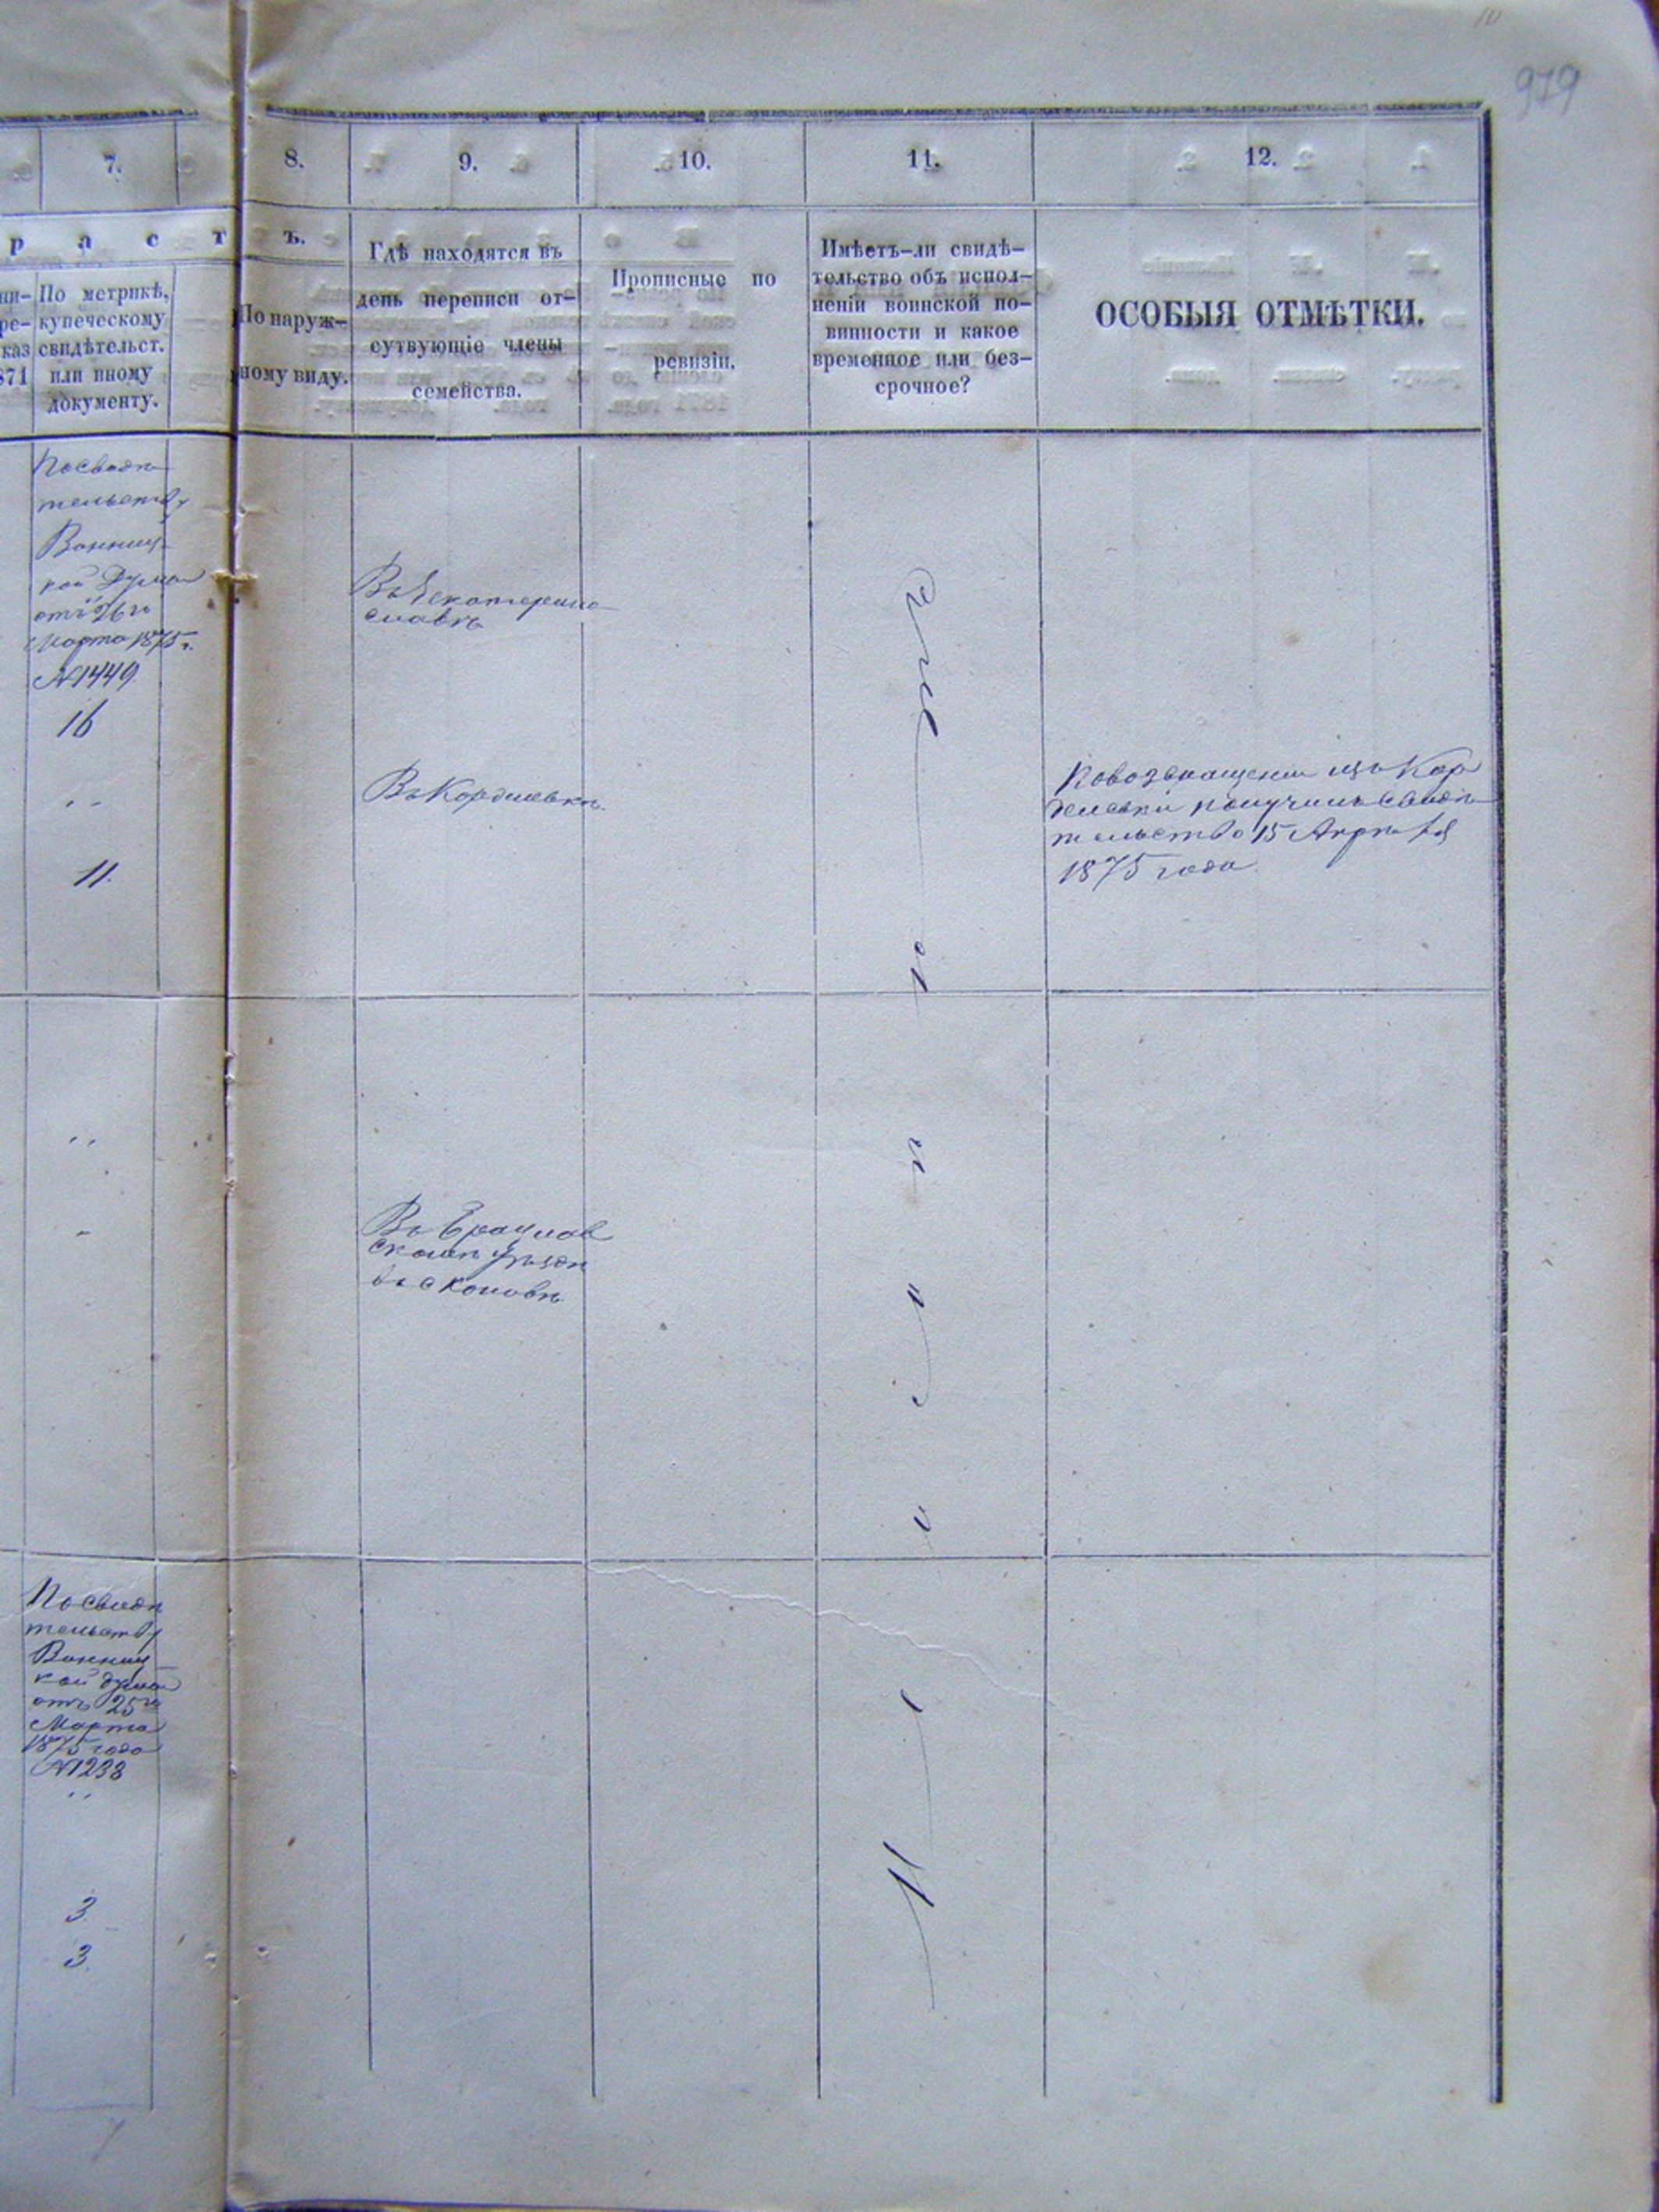 10
979
7.
8.
9.
10.
11.
12.
р а с т ъ.
По метрикѣ,
купеческому
свидѣтельст.
или иному
документу.
ни-
ре-
каз
871
По наруж-
ному виду.
Гдѣ находятся въ
день переписи от-
сутвующіе члены
семейства.
Прописные по
ревизіи.
Имѣетъ-ли свидѣ-
тельство объ испол-
неніи воинской по-
винности и какое
временное или без-
срочное?
ОСОБЫЯ ОТМѢТКИ.
По свидѣ
тельству
Винниц
кой Думы
отъ 26го
Марта 1875 г.
№1449
16
11.
Въ Екатерино
славѣ
Въ Кордилевкѣ.
По возвращеніи изъ Кор
делевки получилъ свидѣ
тельство 15 Апрѣля
1875 года
Въ Брацлав
скомъ уѣздѣ
По свидѣ
тельству
Винниц
кой думы
отъ 25го
Марта
1875 года
№1238
3.
3.